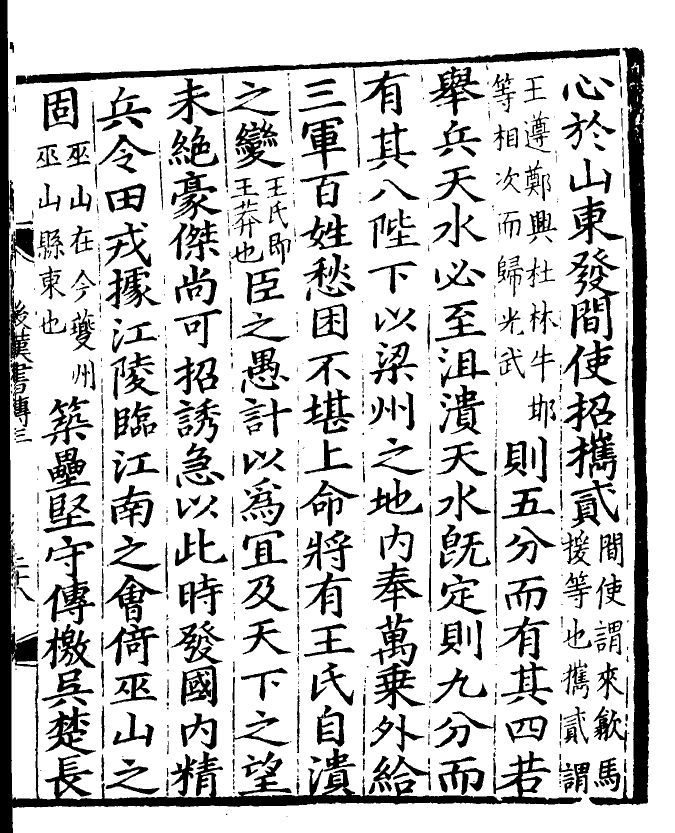 心於山東發間使招攜貳間使謂來歙馬援等也攜貳謂
王遵鄭興杜林牛邯等相次而歸光武則五分而有其四若
舉兵天水必至沮潰天水旣定則九分而
有其八陛下以梁州之地內奉萬乗外給
三軍百姓愁困不堪上命將有王氏自潰
之變王氏即王莽也臣之愚計以爲冝及天下之望
未絶豪傑尚可招誘急以此時發國內精
兵令田戎據江陵臨江南之會倚巫山之
固巫山在今夔州巫山縣東也築壘堅守傳檄吳楚長
後漢書傳三
二十八